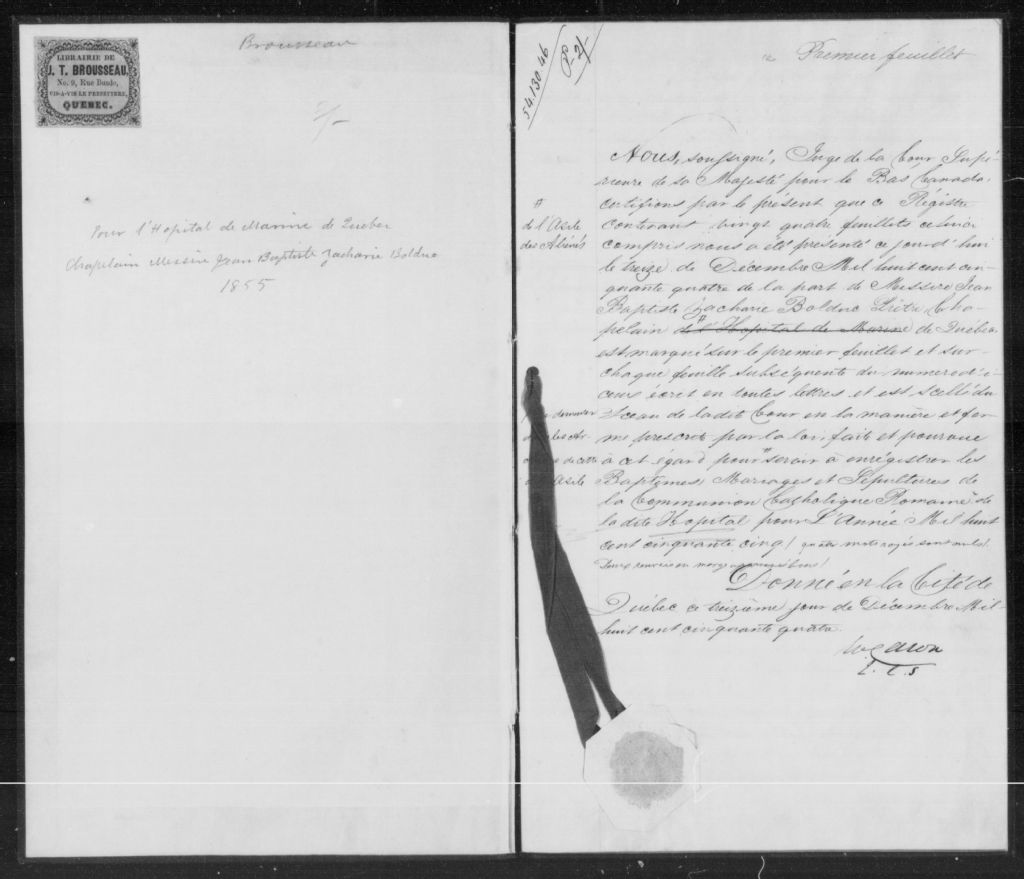 Brousseau
LIBRAIRIE DE
J. T. BROUSSEAU,
No. 9, Rue Buade,
VIS-A-VIS LE PRESBYTERE,
QUEBEC.
2/-
Pour l'Hopital de Marine de Quebec
Chapelain Messire Jean Baptiste Zacharie Bolduc
1855
54.130.46
P. 2/
Premier feuillet
Nous, soussigné, Juge de la Cour Supé-
rieure de sa Majesté pour le Bas Canada,
certifions par le présent que ce Régistre
contenant vingt quatre feuillets celui ci
compris nous a été présenté ce jourd'hui
le treize de Décembre Mil huit cent cin-
quante quatre de la part de Messire Jean
Baptiste Zacharie Bolduc Prêtre Cha-
pelain # de l'Hopital de Marine de Québec
est marqué sur le premier feuillet et sur
chaque feuille subséquente du numero d'i-
ceux écrit en toutes lettres et est scellé du
Sceau de la dite Cour en la manière et for-
me prescrite par la loi, faite et pourvue
à cet égard pour servir à enrégistrer les
Baptêmes, Mariages et Sépultures de
la Communion Catholique Romaine de
la dite Hopital pour L'Année Mil huit
cent cinquante cinq! quatre mots rayés sont nuls!
Deux renvois en marge approuvés bons!
Donné en la Cité de
Québec ce treizième jour de Décembre Mil-
huit cent cinquante quatre.
Caron
J. C. S
#
de l'Asile
des Aliénés
de cette
Asile